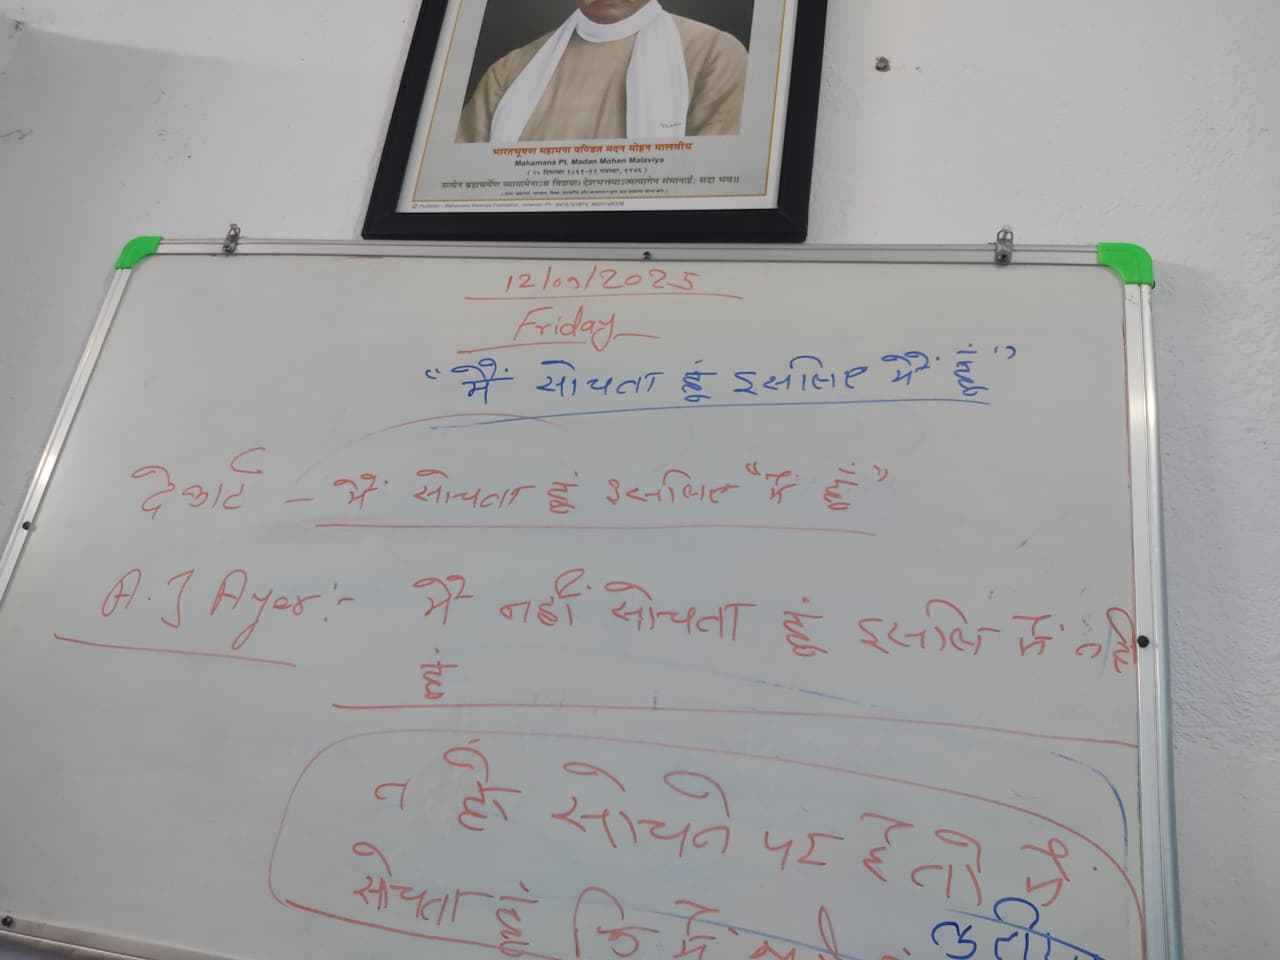 भारतभूषण महामना पण्डित मदन मोहन मालवीय
Mahamana Pt. Madan Mohan Malaviya
12/09/2025
Friday
"मैं सोचता हूं इसलिए मैं हूं"
देकार्ट - मैं सोचता हूं इसलिए "मैं हूं"
A. J Ayer:- मैं नहीं सोचता हूं इसलि मैं नहीं
हूं
न हो सोचने पर है तो मैं
सोचता हूं कि मैं